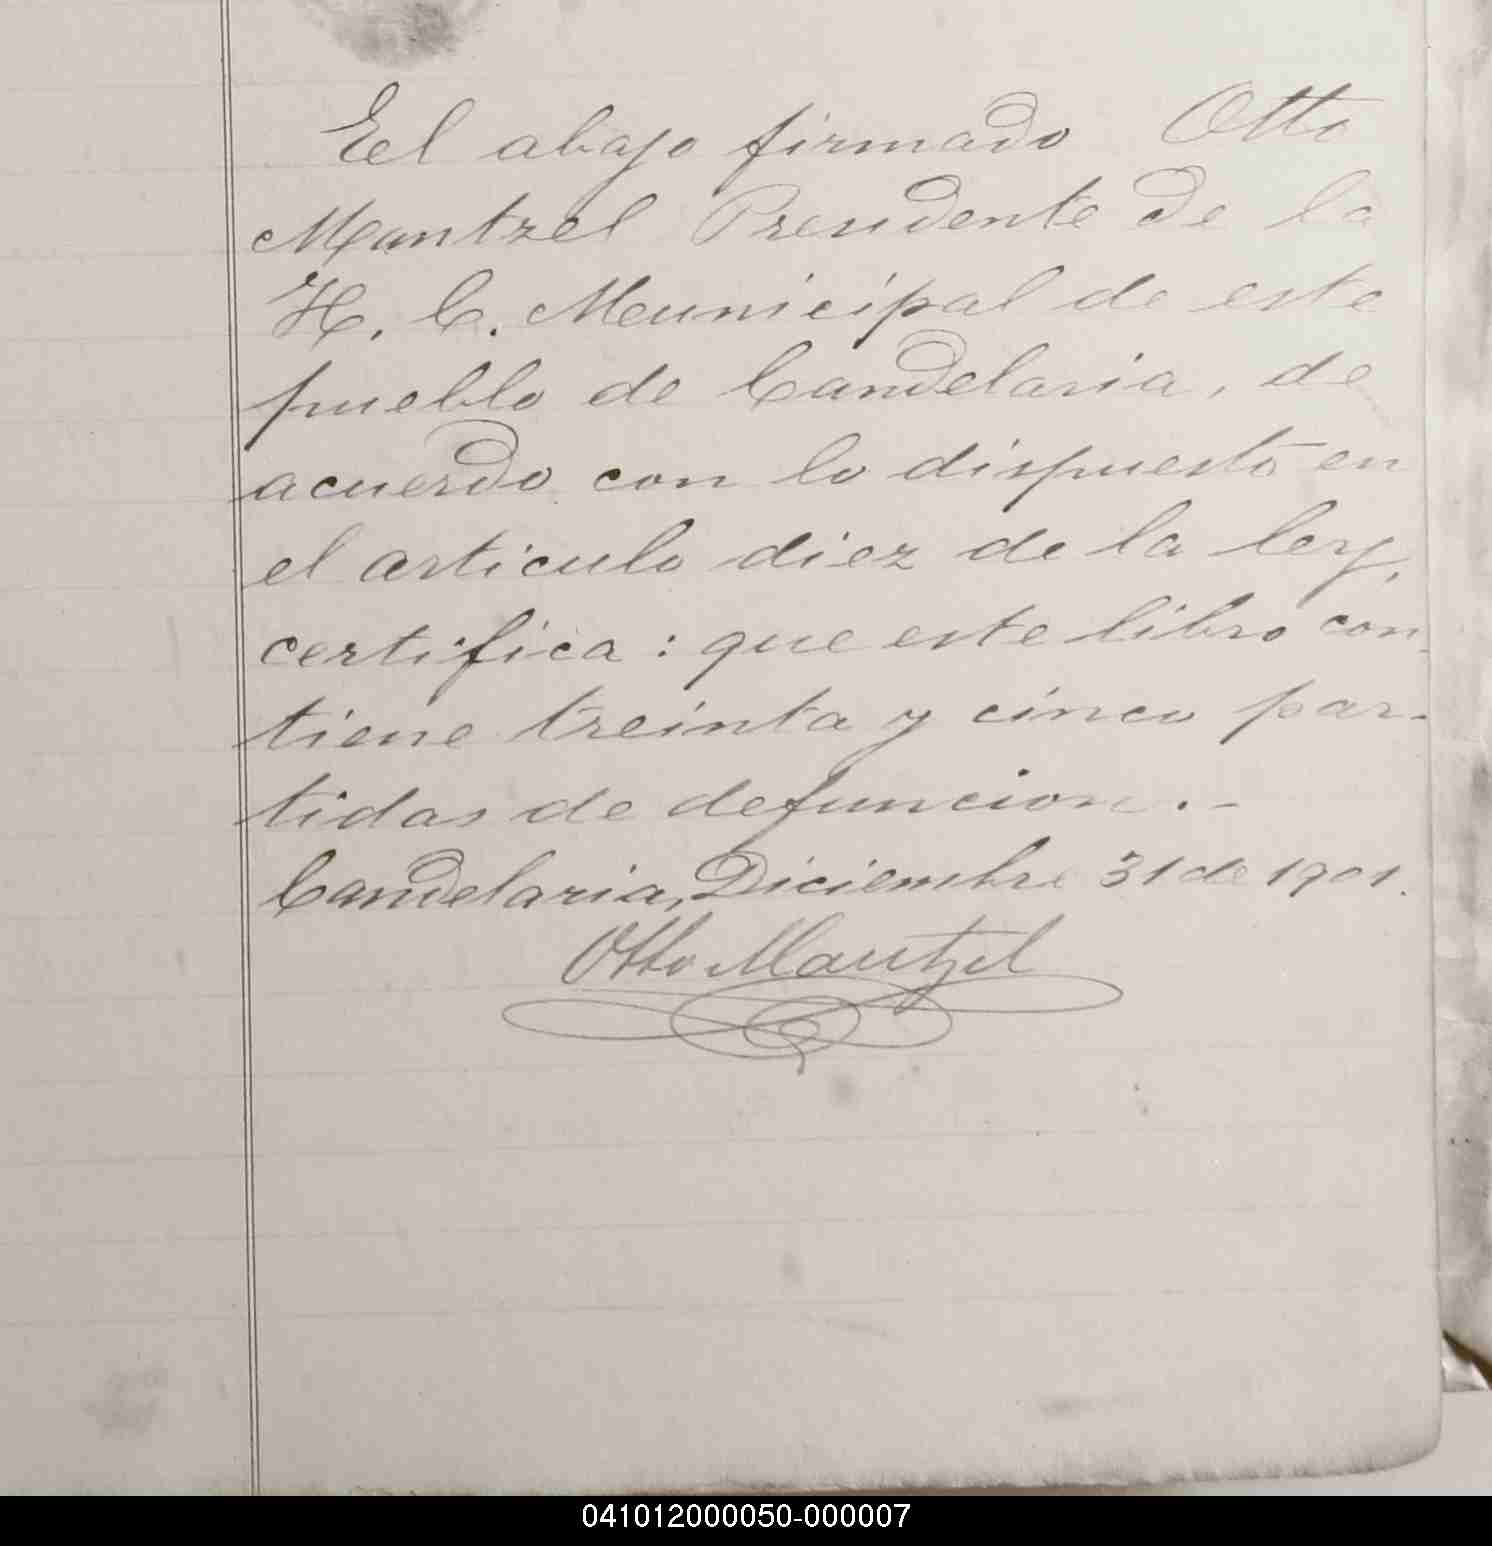 El abajo firmado Otto
Mantzel Presidente de la
H. C. Municipal de este
pueblo de Candelaria, de
acuerdo con lo dispuesto en
el articulo diez de la ley,
certifica: que este libro con-
tiene treinta y cinco par-
tidas de defuncion.-
Candelaria, Diciembre 31 de 1901.
Otto Mantzel
041012000050-000007